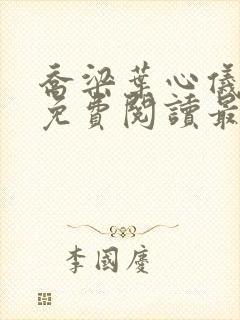 喬梁葉心儀
免費閱讀最
李國慶